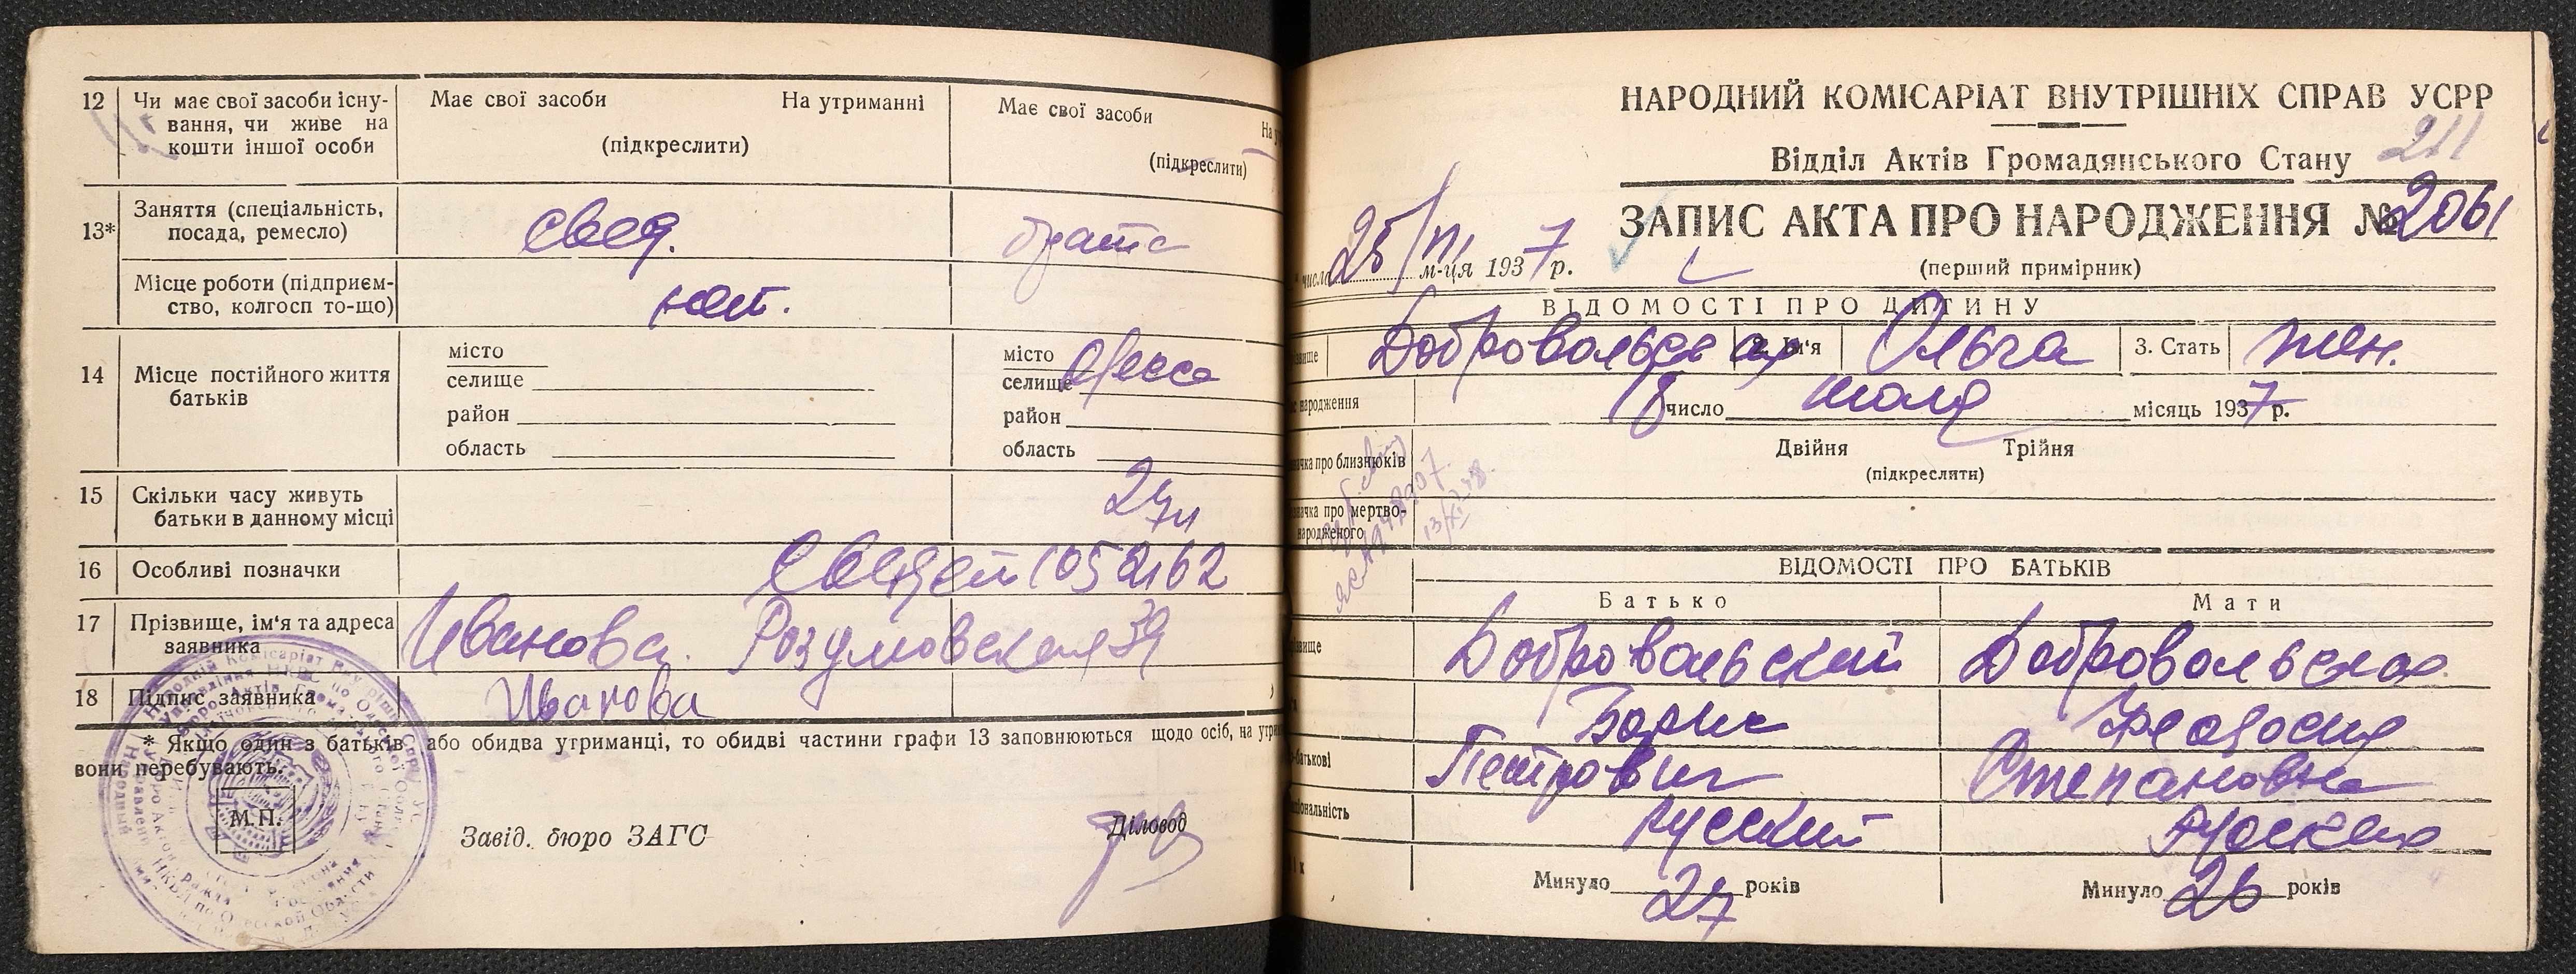 12 Чи має свої засоби існу-
вання, чи живе на
кошти іншої особи
Має свої засоби На утриманні
(підкреслити)
Має свої засоби
(підкреслити)
13* Заняття (спеціальність,
посада, ремесло)
Місце роботи (підприєм-
ство, колгосп то-що)
14 Місце постійного життя
батьків
місто
селище
район
область
місто Одесса
селище
район
область
15 Скільки часу живуть
батьки в данному місці
16 Особливі позначки
17 Прізвище, ім'я та адреса
заявника
Иванова. Розумовская 39
18 Підпис заявника Иванова
* Якщо один з батьків або обидва утриманці, то обидві частини графи 13 заповнюються щодо осіб, на
вони перебувають.
М.П.
Завід. бюро ЗАГС Діловод
НАРОДНИЙ КОМІСАРІАТ ВНУТРІШНІХ СПРАВ УСРР
211
Відділ Актів Громадянського Стану
ЗАПИС АКТА ПРО НАРОДЖЕННЯ № 2061
числа 25/VII м-ця 1937 р.
(перший примірник)
ВІДОМОСТІ ПРО ДИТИНУ
Добровольская 2. Ім'я Ольга 3. Стать жен.
народження 18 число июля місяць 1937 р.
про близнюків
Двійня Трійня
(підкреслити)
про мертво-
народженого
ВІДОМОСТІ ПРО БАТЬКІВ
Батько Мати
Добровольский Добровольская
Борис Феодосия
Петрович Степановна
русский русская
Минуло 27 років Минуло 26 років